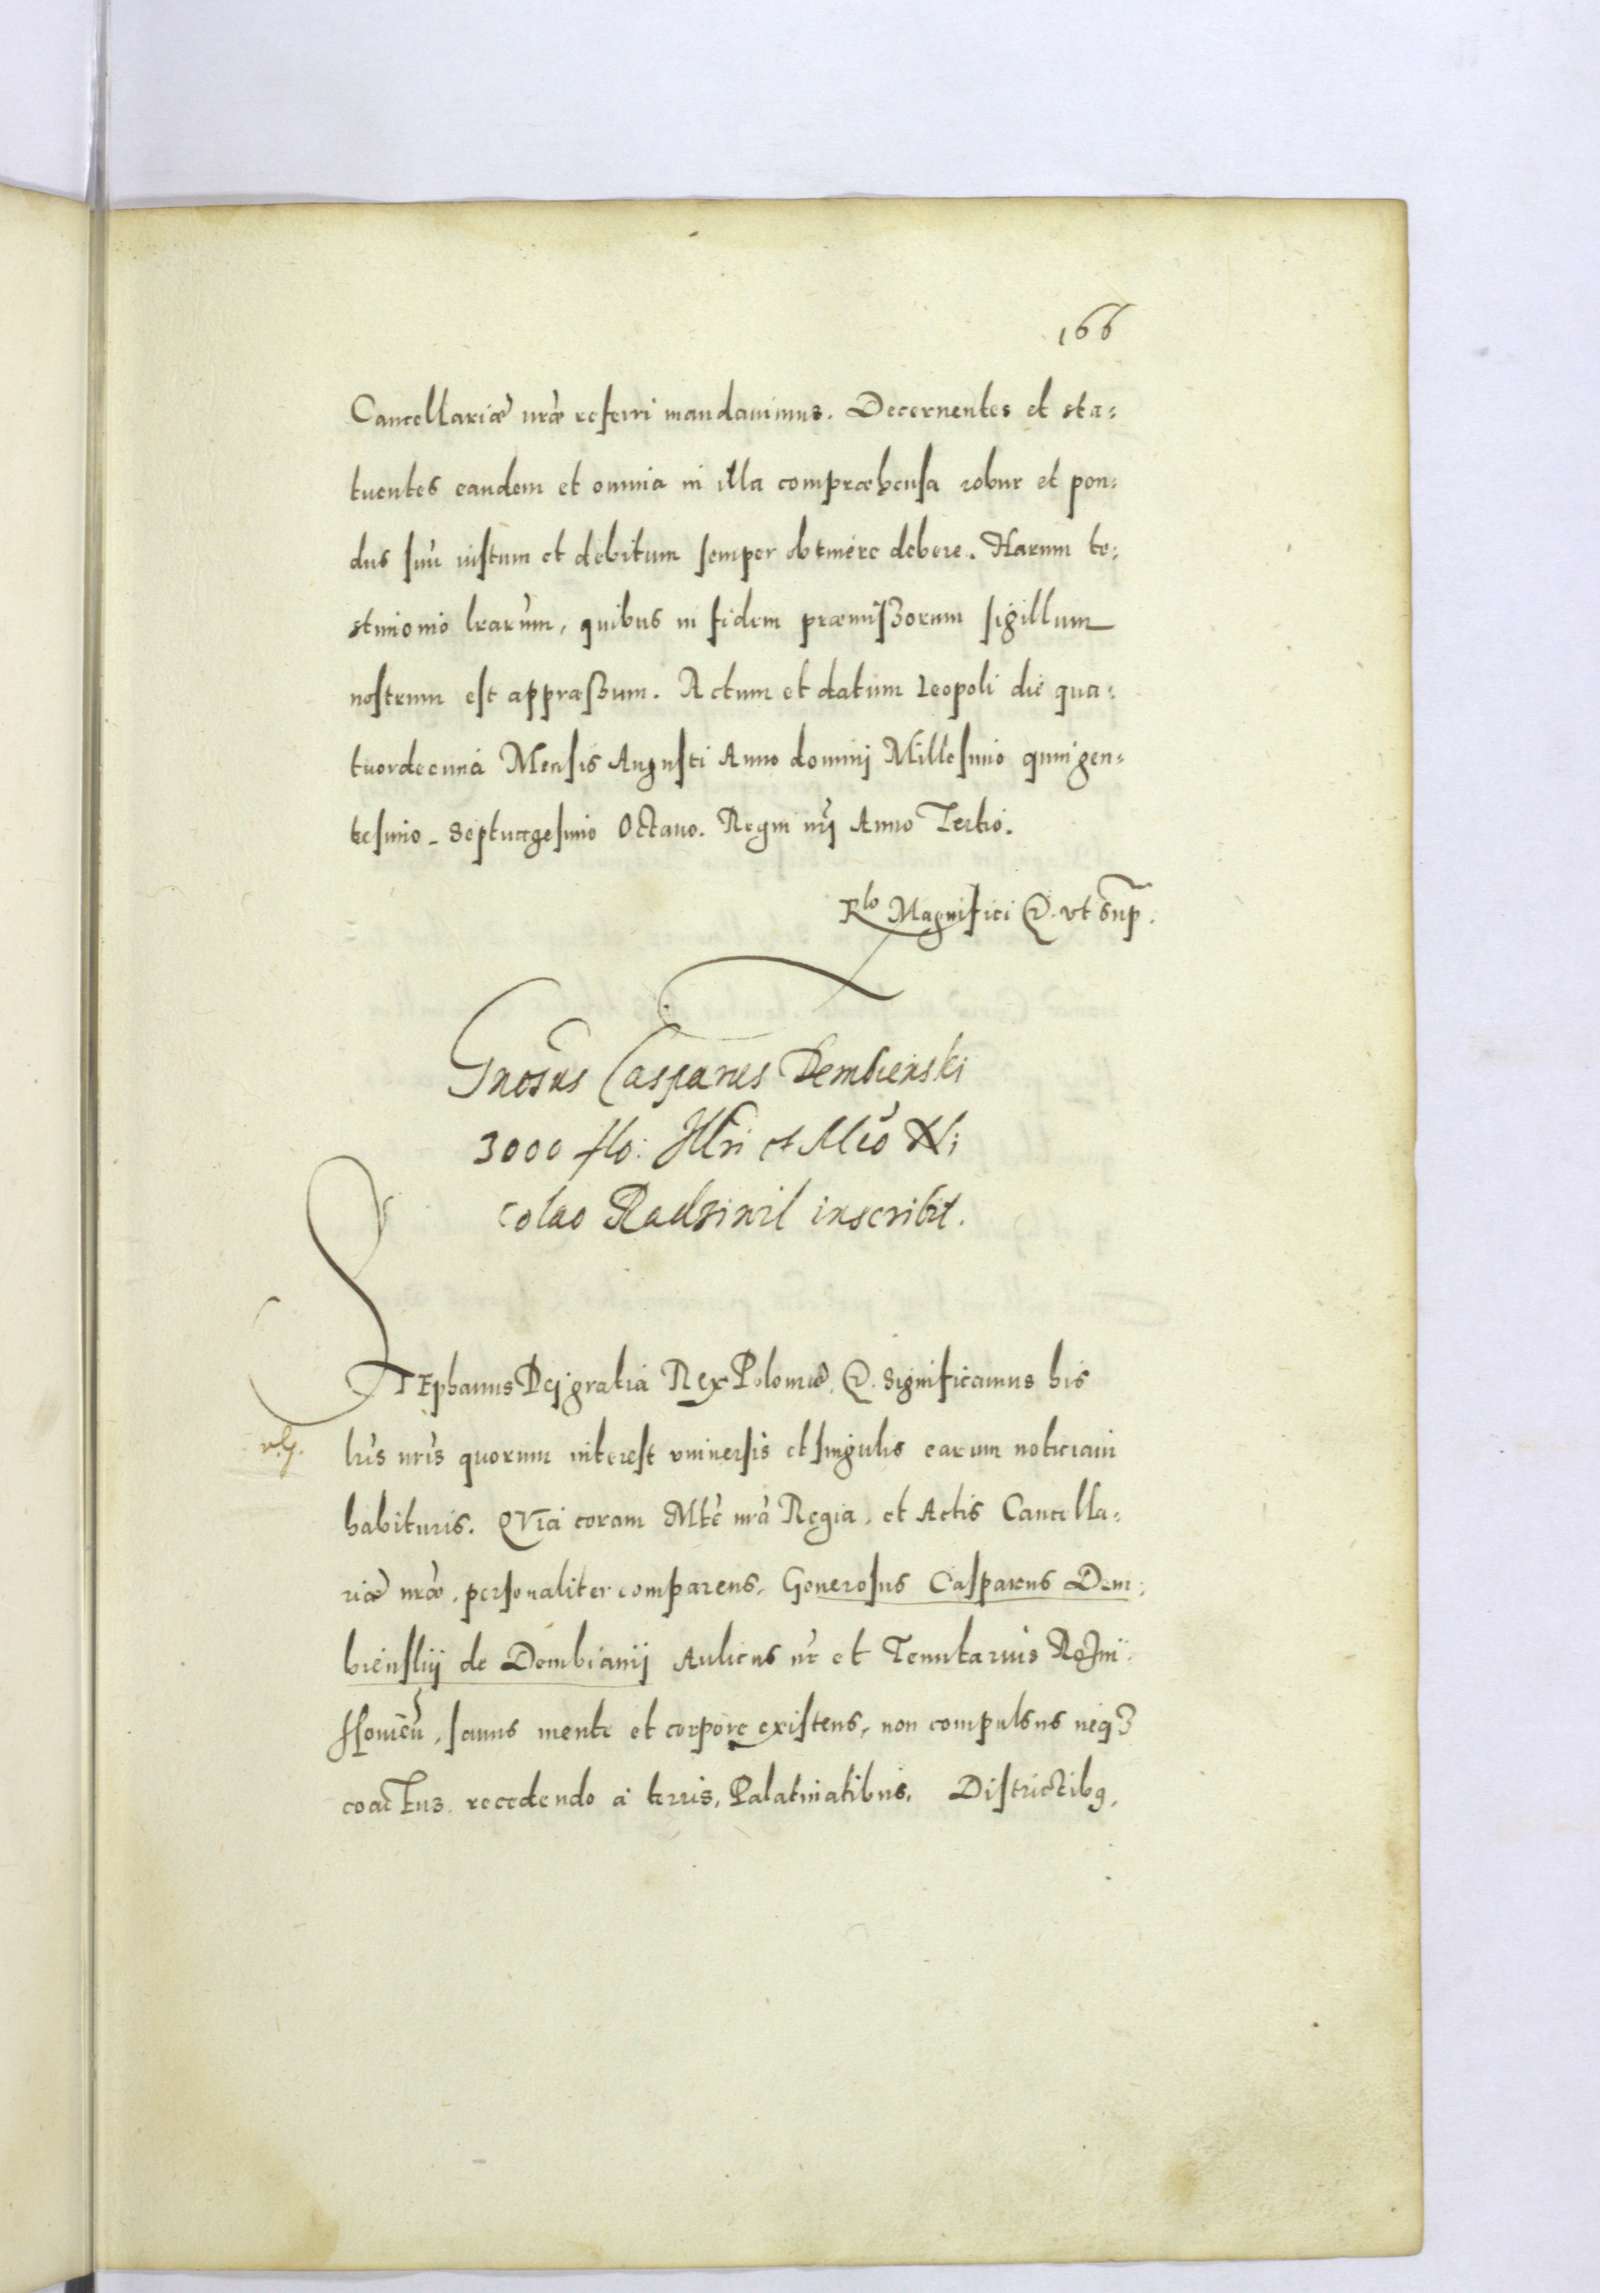 166
Cancellariæ nr̃æ referri mandauimus. Decernentes et sta=
tuentes eandem et omnia in illa compræhensa robur et pon=
dus suũ iustum et debitum semper obtinere debere. Harum te=
stimonio lrarũm, quibus in fidem præmißorum sigillum
nostrum est appræßum. Actum et datum Leopoli die qua=
tuordecima Mensis Augusti Anno dominij Millesimo quingen=
tesimo Septuagesimo Octauo. Regni nr̃i Anno Tertio.
Rlo Magnifici &. vt sup.
Gnosus Casparus Dembienski
3000 flo: Illri et Mco Ni
colao Radziwil inscribit.
STEphanus Dej gratia Rex Poloniæ &. Significamus his
lr̃is nr̃is quorum interest vniuersis et singulis earum noticiam
habituris. QVia coram Mte nr̃a Regia, et Actis Cancella=
riæ nr̃æ, personaliter comparens, Generosus Casparus Dem=
bienskij de Dembianij Aulicus nr̃ et Tenutarius
sanus mente et corpore existens, non compulsus neqȝ
coactus, recedendo a terris, Palatinatibus, Districtibꝯ,